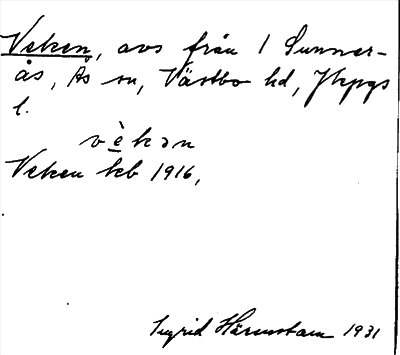 Veken, avs från 1 Sunner-
ås, Ås sn, Västbo hd, Jkpgs
l.
vèkən
Veken kb 1916,
Ingrid Härenstam 1931